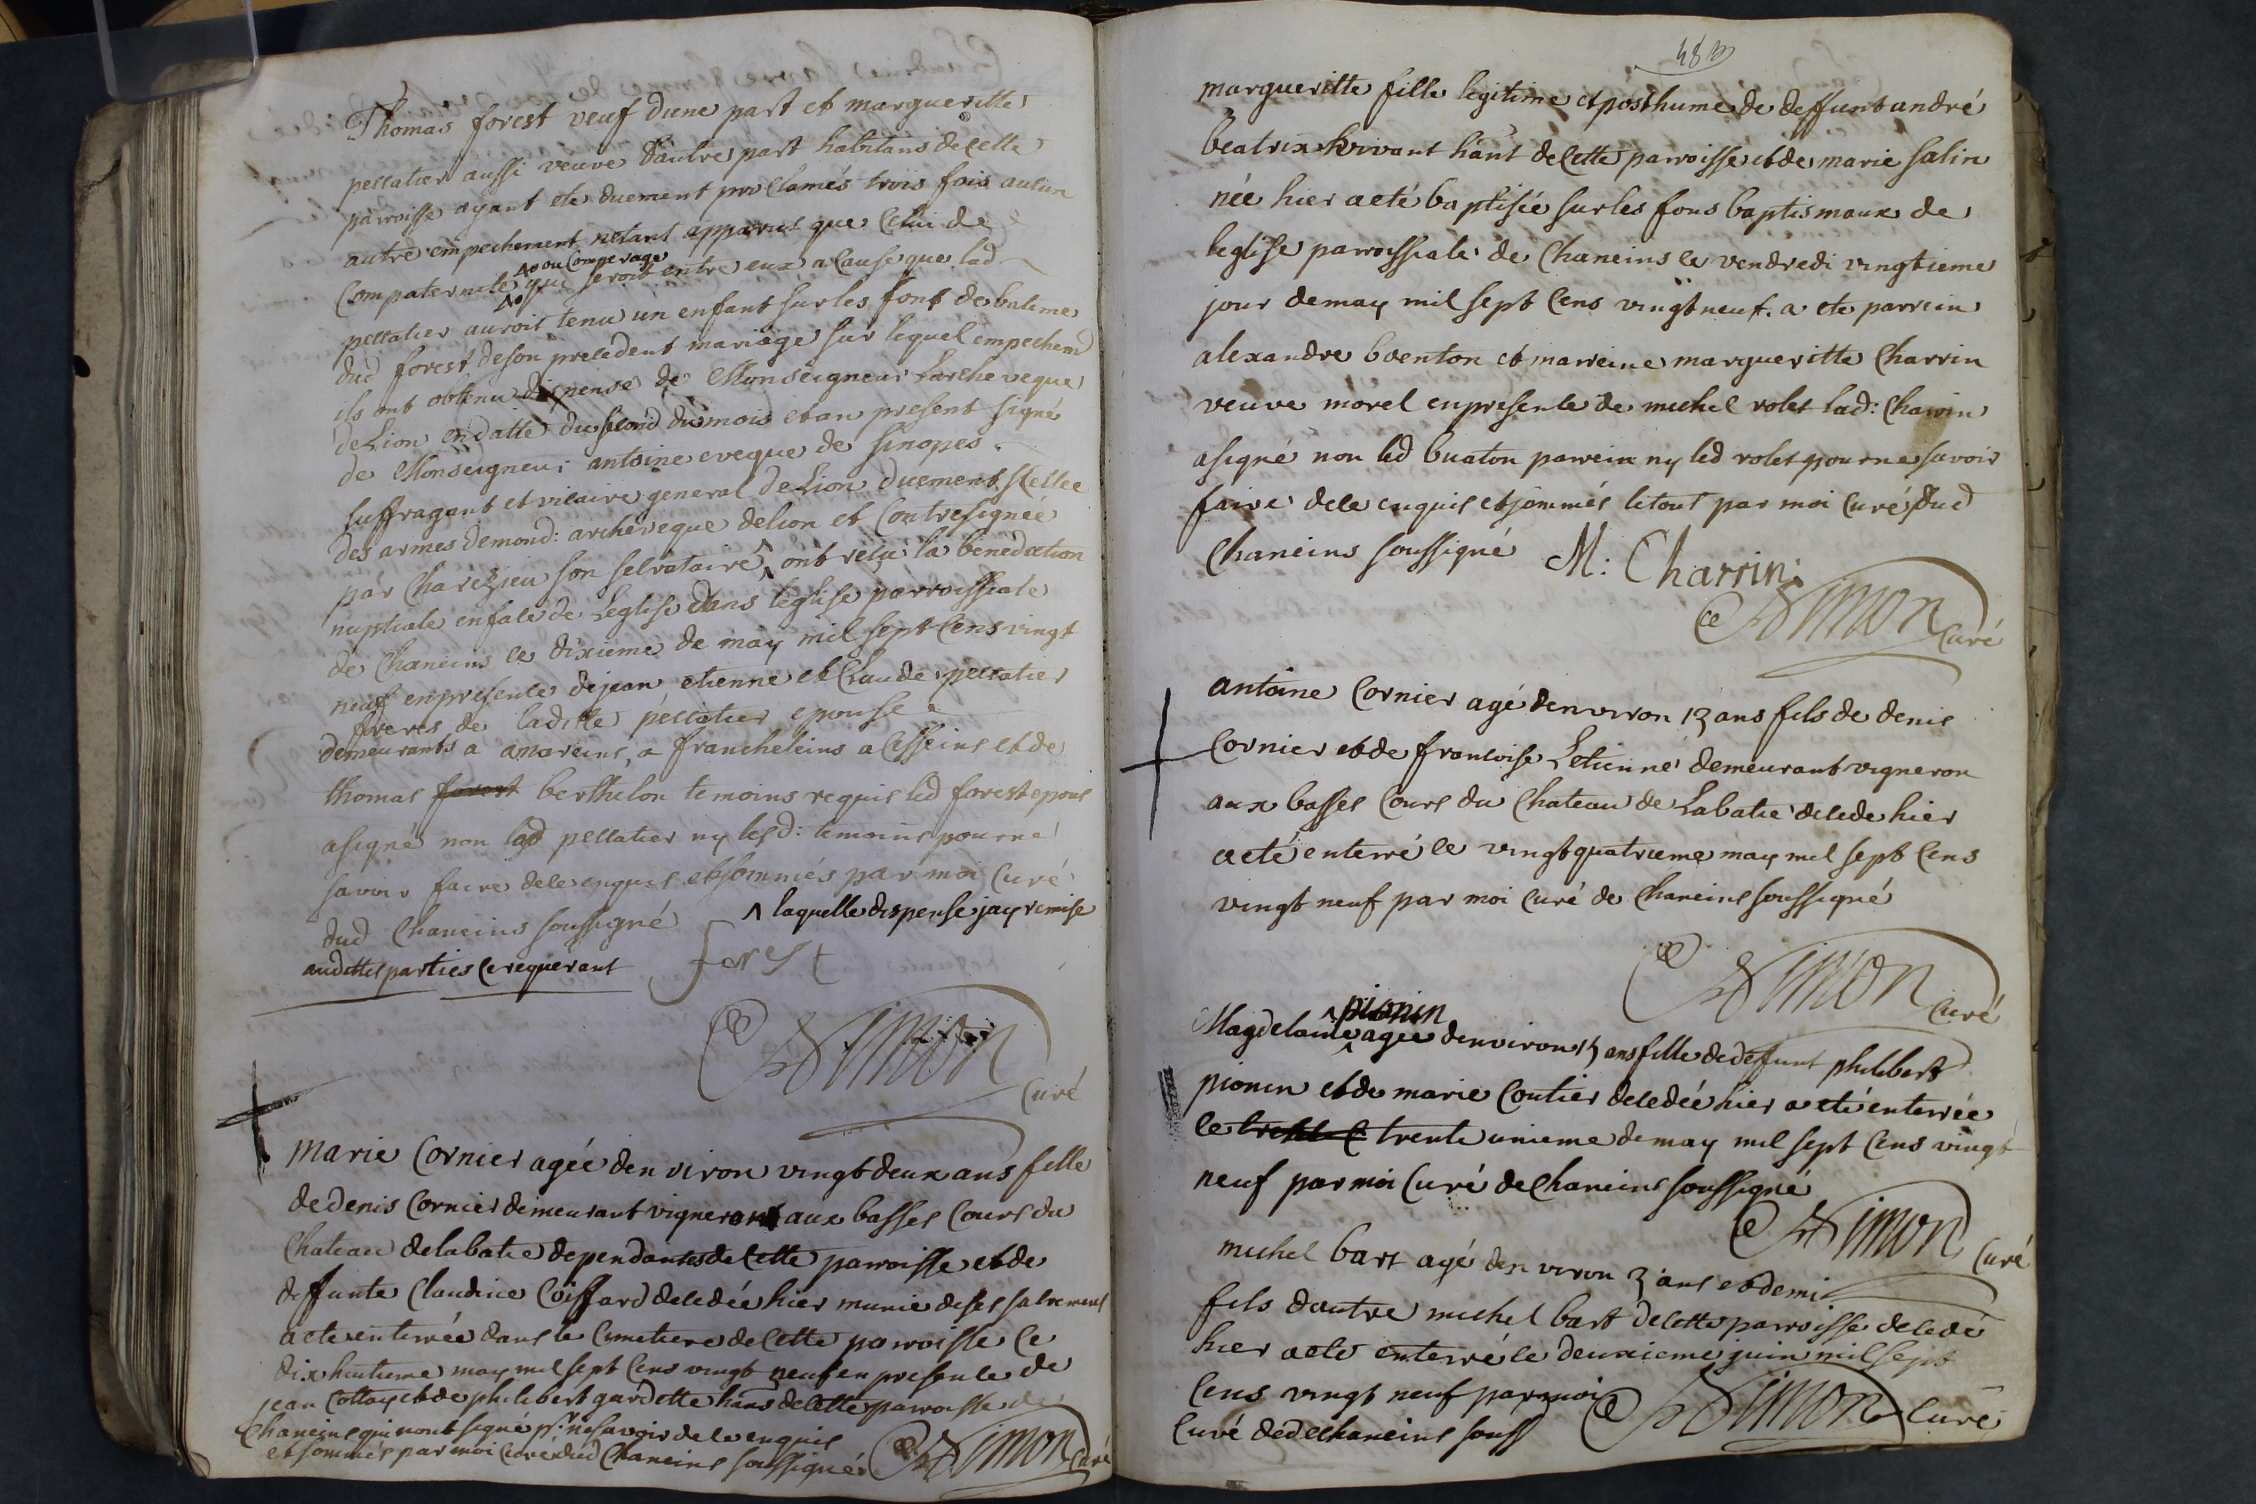 Thomas forest veuf dune part et margueritte
pellatier aussi veuve dautre part habitans de cette
parroisse ayant ete duement proclamés trois fois aucun
autre empechement netant apparus que celui de
ou Comperage
Compaternité qui seroit entre eux a cause que lad
pellatier auroit tenu un enfant sur les font de bateme
dud forest de son precedent mariage sur lequel empechemt
ils ont obtenu dispense de Monseigneur Larcheveque
de Lion en datte du second du mois et an present signé
de Monseigneur antoine eveque de sinopes
suffragant et vicaire general de Lion duement scellée
des armes de mond: archeveque de lion et Contresignée
par Charezieu son secretaire ont reçu la benediction
nuptiale en face de Leglise dans leglise parroissiale
de Chaneins le dixieme de may mil sept cens vingt
neuf en presence de jean etienne et Claude pellatier
freres de laditte pellatier epouse
demeurants a amareins, a francheleins a Cesseins et de
thomas forest berthelon temoins requis led forest epous
a signé non lad pellatier ny lesd: temoins pour ne
savoir faire de ce enquis et sommés par moi Curé
dud Chaneins soussigné
laquelle dispense jay remise
auddittes parties ce requerant
forest
Simon
Curé
marie Cornier agée denviron vingt deux ans fille
de denis Cornier demeurant vigneron aux basses Cours du
Chateau de labatie dependantes de Cette parroisse et de
deffunte Claudine Coiffard decedée hier munie de ses sacremens
a ete enterrée dans le Cimetiere de Cette parroisse le
dix huitieme may mil sept cens vingt neuf en presence de
jean Cottay et de philibert gardette hans de Cette parroisse de
Chaneins qui nont signé pr. ne savoir de ce enquis
et sommés par moi Curé dud Chaneins soussigné
Simon Curé
48
margueritte fille legitime et posthume de deffunt andré
beatrix vivant hant de Cette parroisse et de marie salin
née hier a eté baptisée sur les fons baptismaux de
leglise parroissiale de Chaneins le vendredi vingtieme
jour de may mil sept Cens vingt neuf. a ete parrein
alexandre buenton et marreine margueritte Charrin
veuve morel en presence de michel rolet lad: Charrin
a signé non led buaton parrein ny led rolet pour ne savoir
faire de ce enquis et sommés le tout par moi Curé dud
Chaneins soussigné
M: Charrin
Simon Curé
antoine Cornier agé denviron 13 ans fils de denis
Cornier et de francoise Letienne demeurant vigneron
aux basses Cours du Chateau de Labatie decede hier
a eté enterré le vingt quatrieme may mil sept Cens
vingt neuf par moi Curé de Chaneins soussigné
Simon
Curé
pionin
Magdelaine agée denviron 15 ans fille de defunt philibert
pionin et de marie Coutier decedée hier a eté enterrée
le trente unieme de may mil sept Cens vingt
neuf par moi Curé de Chaneins soussigné
Simon
Curé
michel bart agé denviron 3 ans et demi
fils dautre michel bart de Cette parroisse decedé
hier a ete enterré le deuxieme juin mil sept
Cens vingt neuf par moi
Simon Curé
Curé dud Chaneins souss